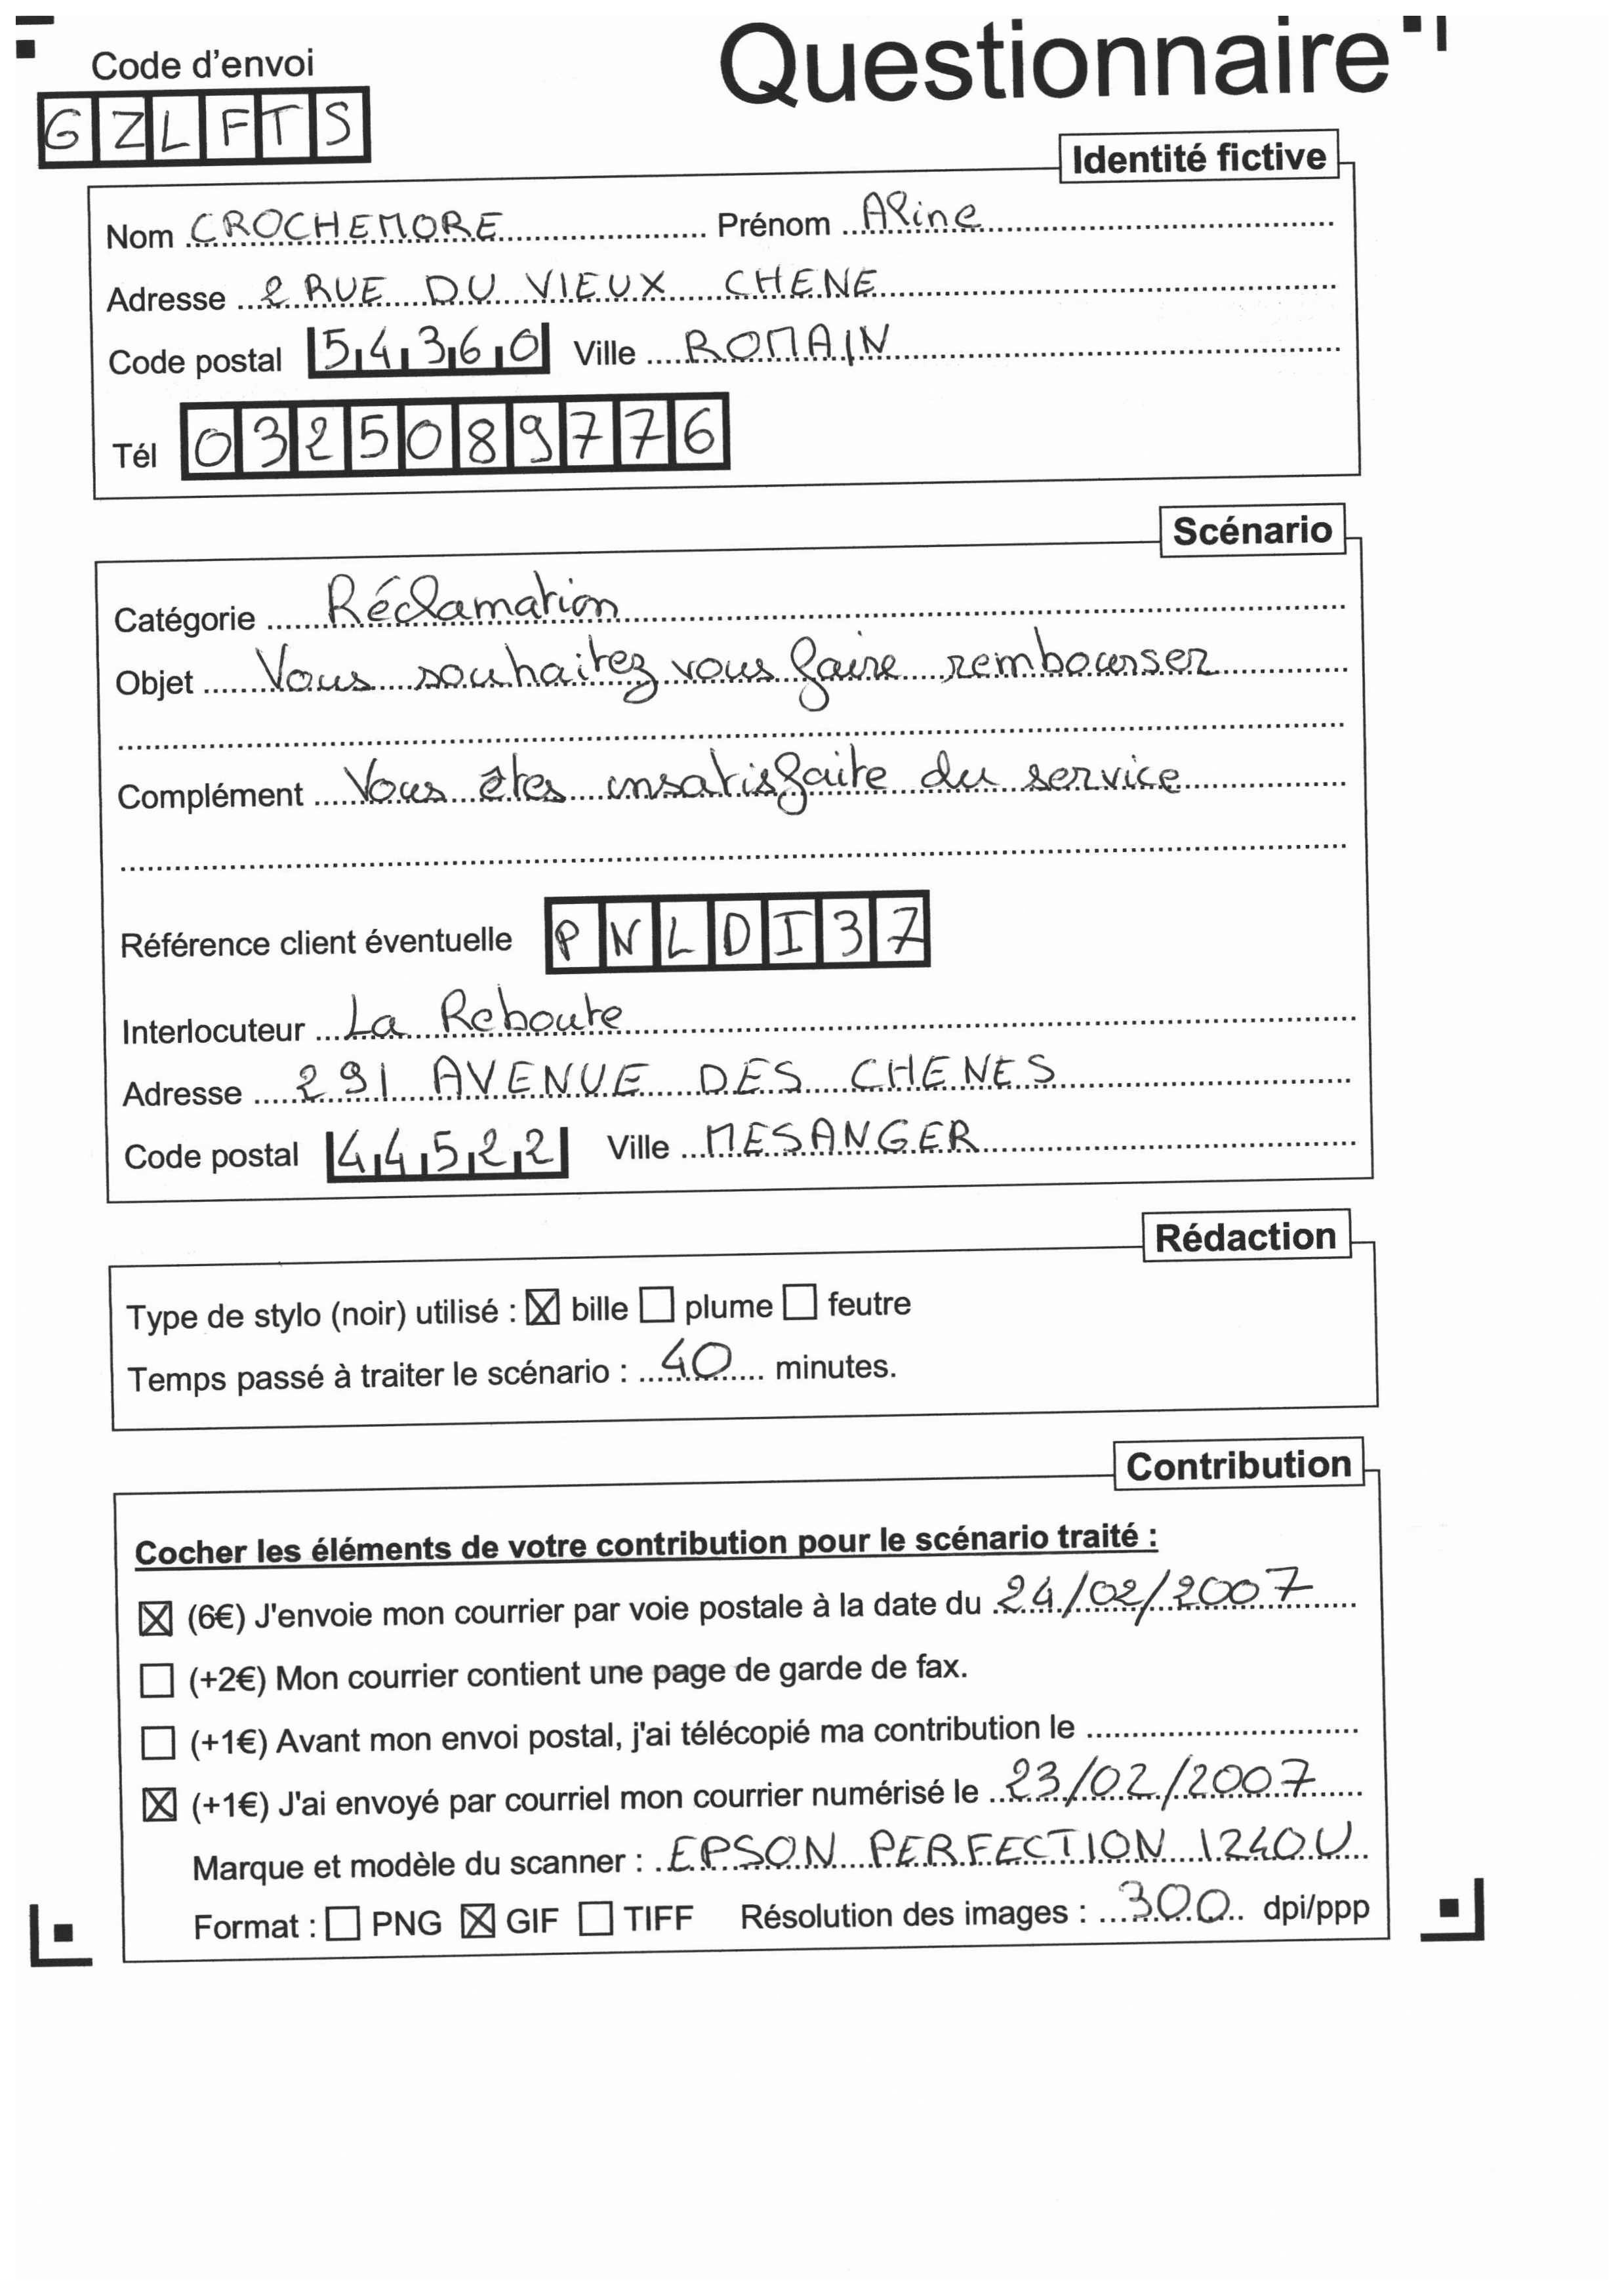 Questionnaire
Code d'envoi
GZLFTS
Identité fictive
Nom CROCHEMORE Prénom Aline
Adresse 2 RUE DU VIEUX CHENE
Code postal 54360 Ville ROMAIN
Tél 0325089776
Scénario
Catégorie Réclamation
Objet Vous souhaitez vous faire rembourser
Complément Vous êtes insatisfaite du service
Référence client éventuelle PNLDI37
Interlocuteur La Reboute
Adresse 291 AVENUE DES CHENES
Code postal 44522 Ville MESANGER
Rédaction
Type de stylo (noir) utilisé : ☒ bille ☐ plume ☐ feutre
Temps passé à traiter le scénario : 40 minutes.
Contribution
Cocher les éléments de votre contribution pour le scénario traité :
☒ (6€) J'envoie mon courrier par voie postale à la date du 24/02/2007
☐ (+2€) Mon courrier contient une page de garde de fax.
☐ (+1€) Avant mon envoi postal, j'ai télécopié ma contribution le
☒ (+1€) J'ai envoyé par courriel mon courrier numérisé le 23/02/2007
Marque et modèle du scanner : EPSON PERFECTION 1240U
Format : ☐ PNG ☒ GIF ☐ TIFF Résolution des images : 300 dpi/ppp